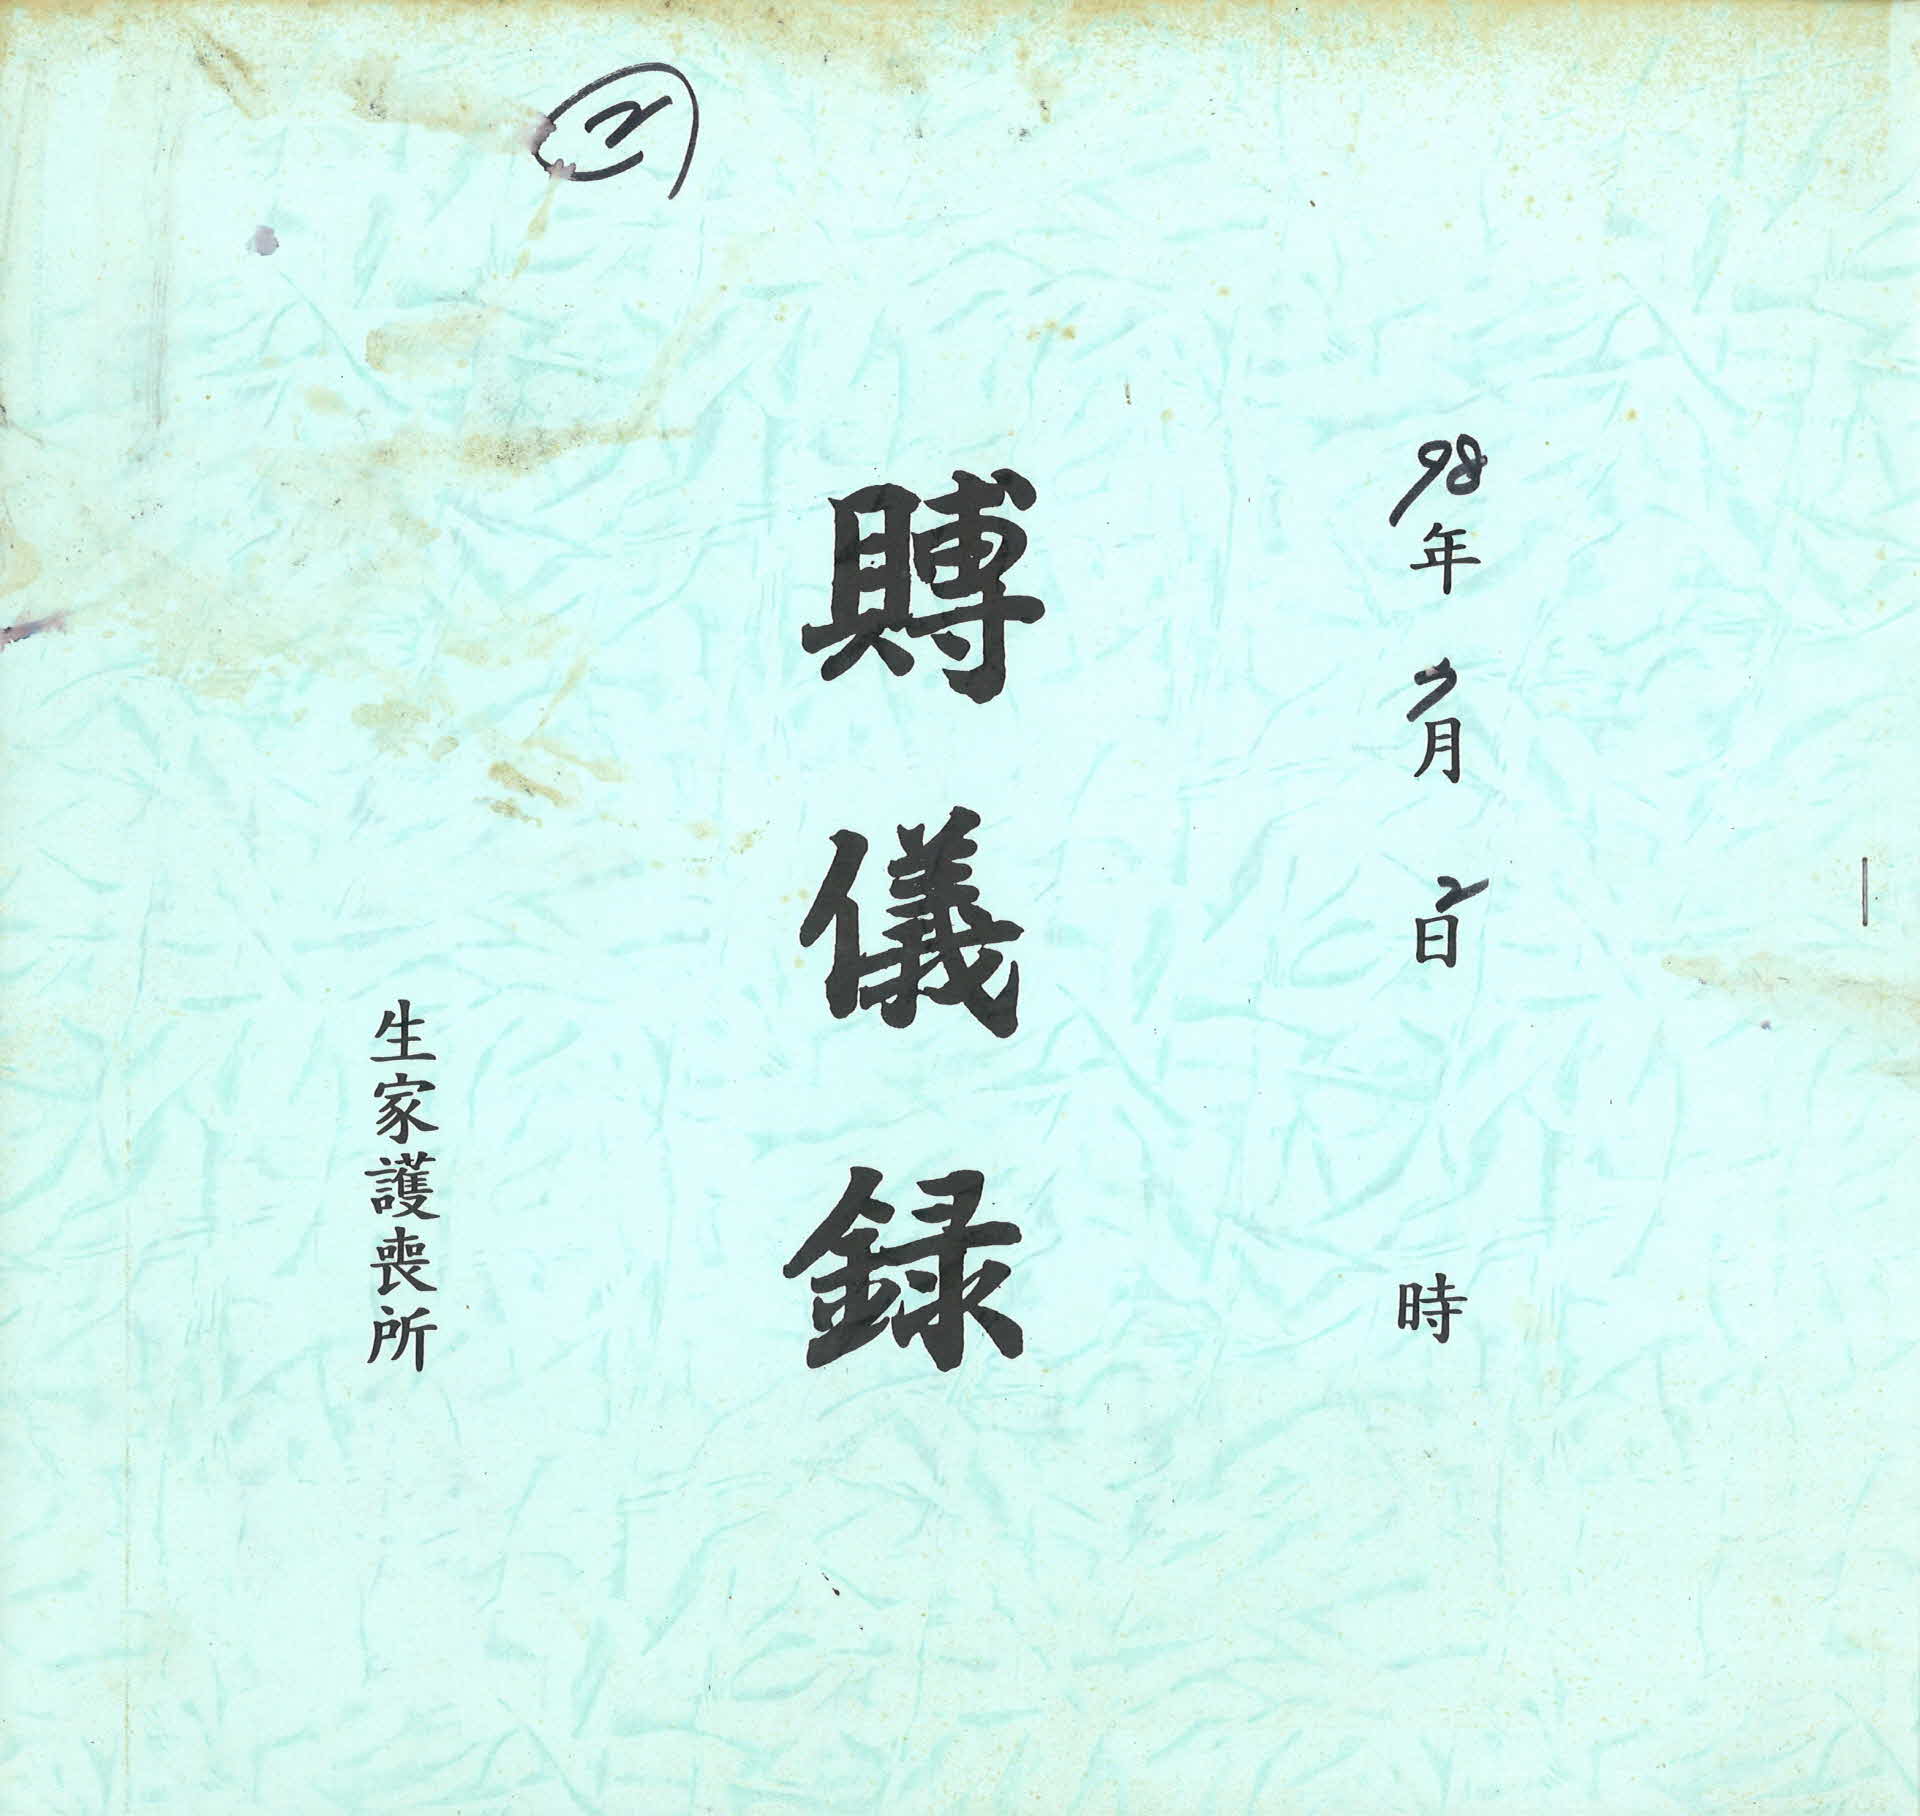 ②
98年 月 2日 時
賻儀録
生家護喪所